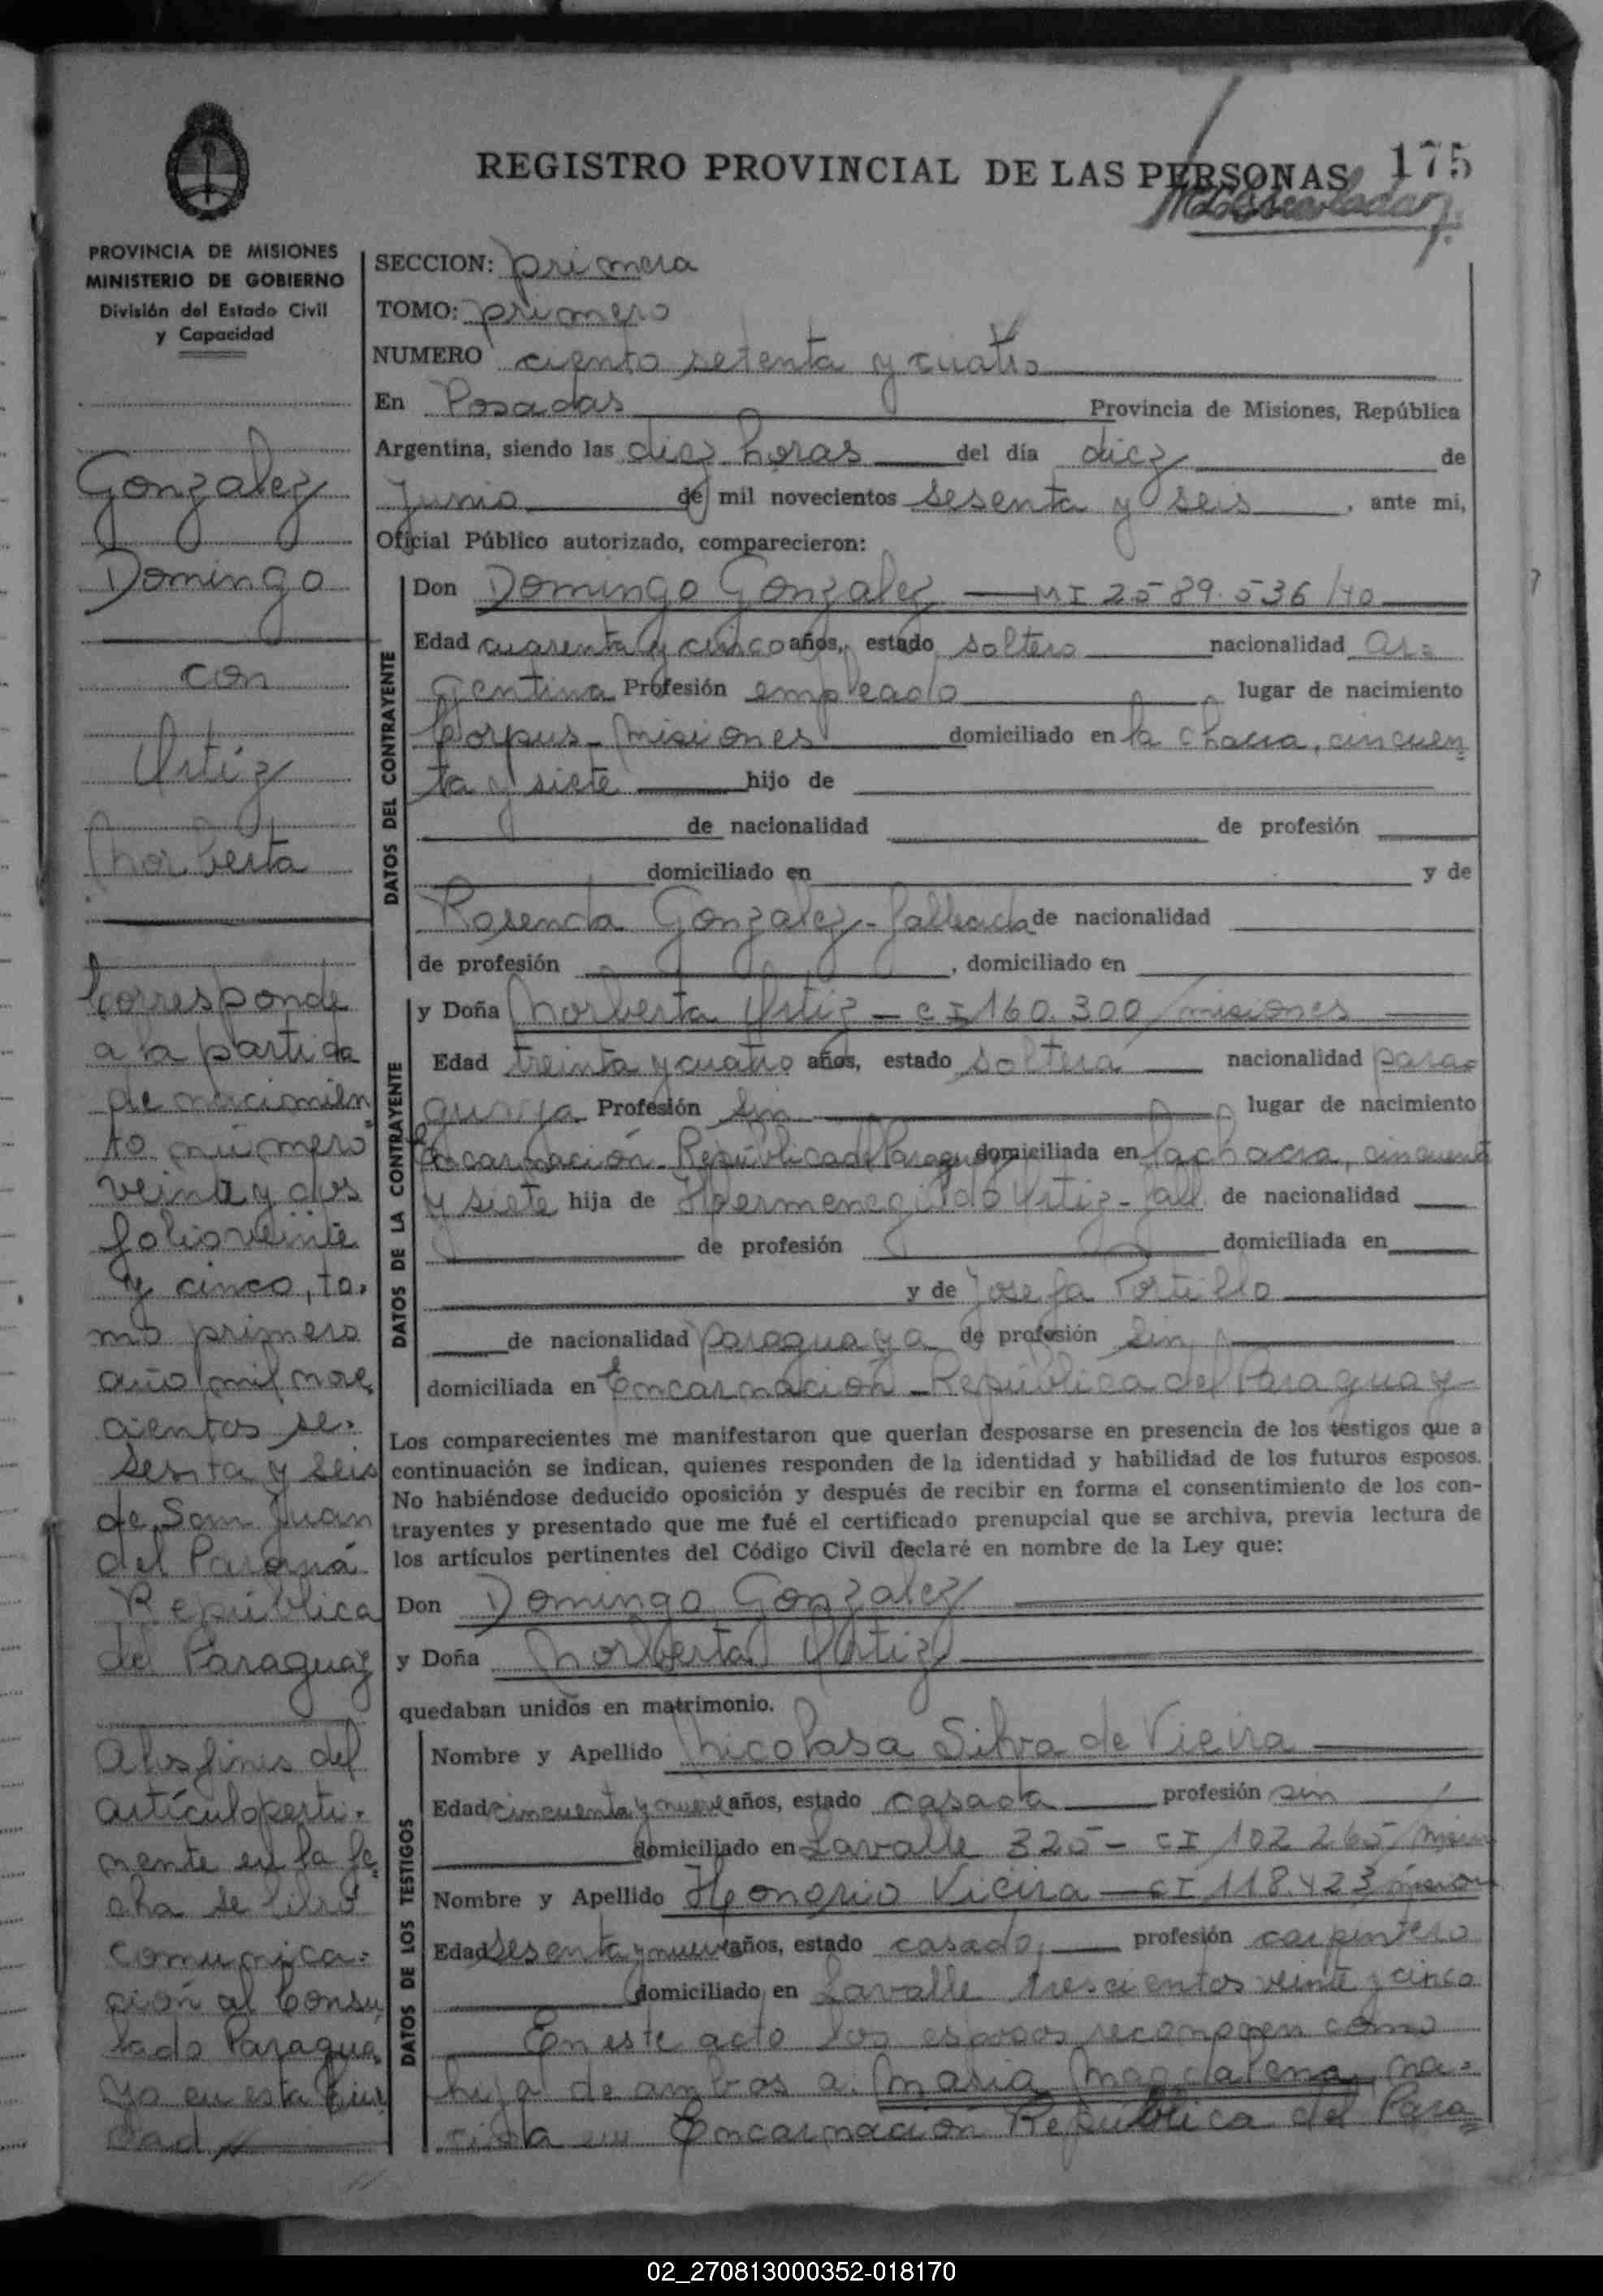 175
REGISTRO PROVINCIAL DE LAS PERSONAS
PROVINCIA DE MISIONES
MINISTERIO DE GOBIERNO
División del Estado Civil
y Capacidad
Gonzalez
Domingo
con
Ortiz
Norberta
Corresponde
a la partida
de nacimien
to número
veinte y dos
folio veinte
y cinco, to-
mo primero
año mil nove
cientos se-
senta y seis
de San Juan
del Paraná
República
del Paraguay
A los fines del
artículo perti-
nente en la fe
cha se libró
comunica-
ción al Consu
lado Paragua
yo en esta Ciu
dad
SECCION: primera
TOMO: primero
NUMERO ciento setenta y cuatro
En Posadas Provincia de Misiones, República
Argentina, siendo las diez horas del día diez de
Junio de mil novecientos sesenta y seis, ante mi,
Oficial Público autorizado, comparecieron:
DATOS DEL CONTRAYENTE
Don Domingo Gonzalez — MI 2589.536/40
Edad cuarenta y cinco años, estado soltero nacionalidad ar=
gentina Profesión empleado lugar de nacimiento
Corpus - Misiones domiciliado en la chacra, cincuen
ta y siete hijo de
de nacionalidad de profesión
domiciliado en y de
Rosenda Gonzalez - fallecida de nacionalidad
de profesión , domiciliado en
DATOS DE LA CONTRAYENTE
y Doña Norberta Ortiz - CI 160.300/misiones
Edad treinta y cuatro años, estado soltera nacionalidad para=
guaya Profesión sin lugar de nacimiento
Encarnación - República del Paraguay domiciliada en la chacra, cincuenta
y siete hija de Hermenegildo Ortiz - fall. de nacionalidad
de profesión domiciliada en
y de Josefa Portillo
de nacionalidad paraguaya de profesión sin
domiciliada en Encarnación - República del Paraguay
Los comparecientes me manifestaron que querían desposarse en presencia de los testigos que a
continuación se indican, quienes responden de la identidad y habilidad de los futuros esposos.
No habiéndose deducido oposición y después de recibir en forma el consentimiento de los con-
trayentes y presentado que me fué el certificado prenupcial que se archiva, previa lectura de
los artículos pertinentes del Código Civil declaré en nombre de la Ley que:
Don Domingo Gonzalez
y Doña Norberta Ortiz
quedaban unidos en matrimonio.
DATOS DE LOS TESTIGOS
Nombre y Apellido Nicolasa Silva de Vieira
Edad cincuenta y nueve años, estado casada profesión sin
domiciliado en Lavalle 325 - CI 102.265/
Nombre y Apellido Honorio Vieira — CI 118.423
Edad sesenta y nueve años, estado casado, profesión carpintero
domiciliado en Lavalle trescientos veinte y cinco
En este acto los esposos reconocen como
hija de ambos a: Maria Magdalena, na=
cida en Encarnación República del Para=
02_270813000352-018170